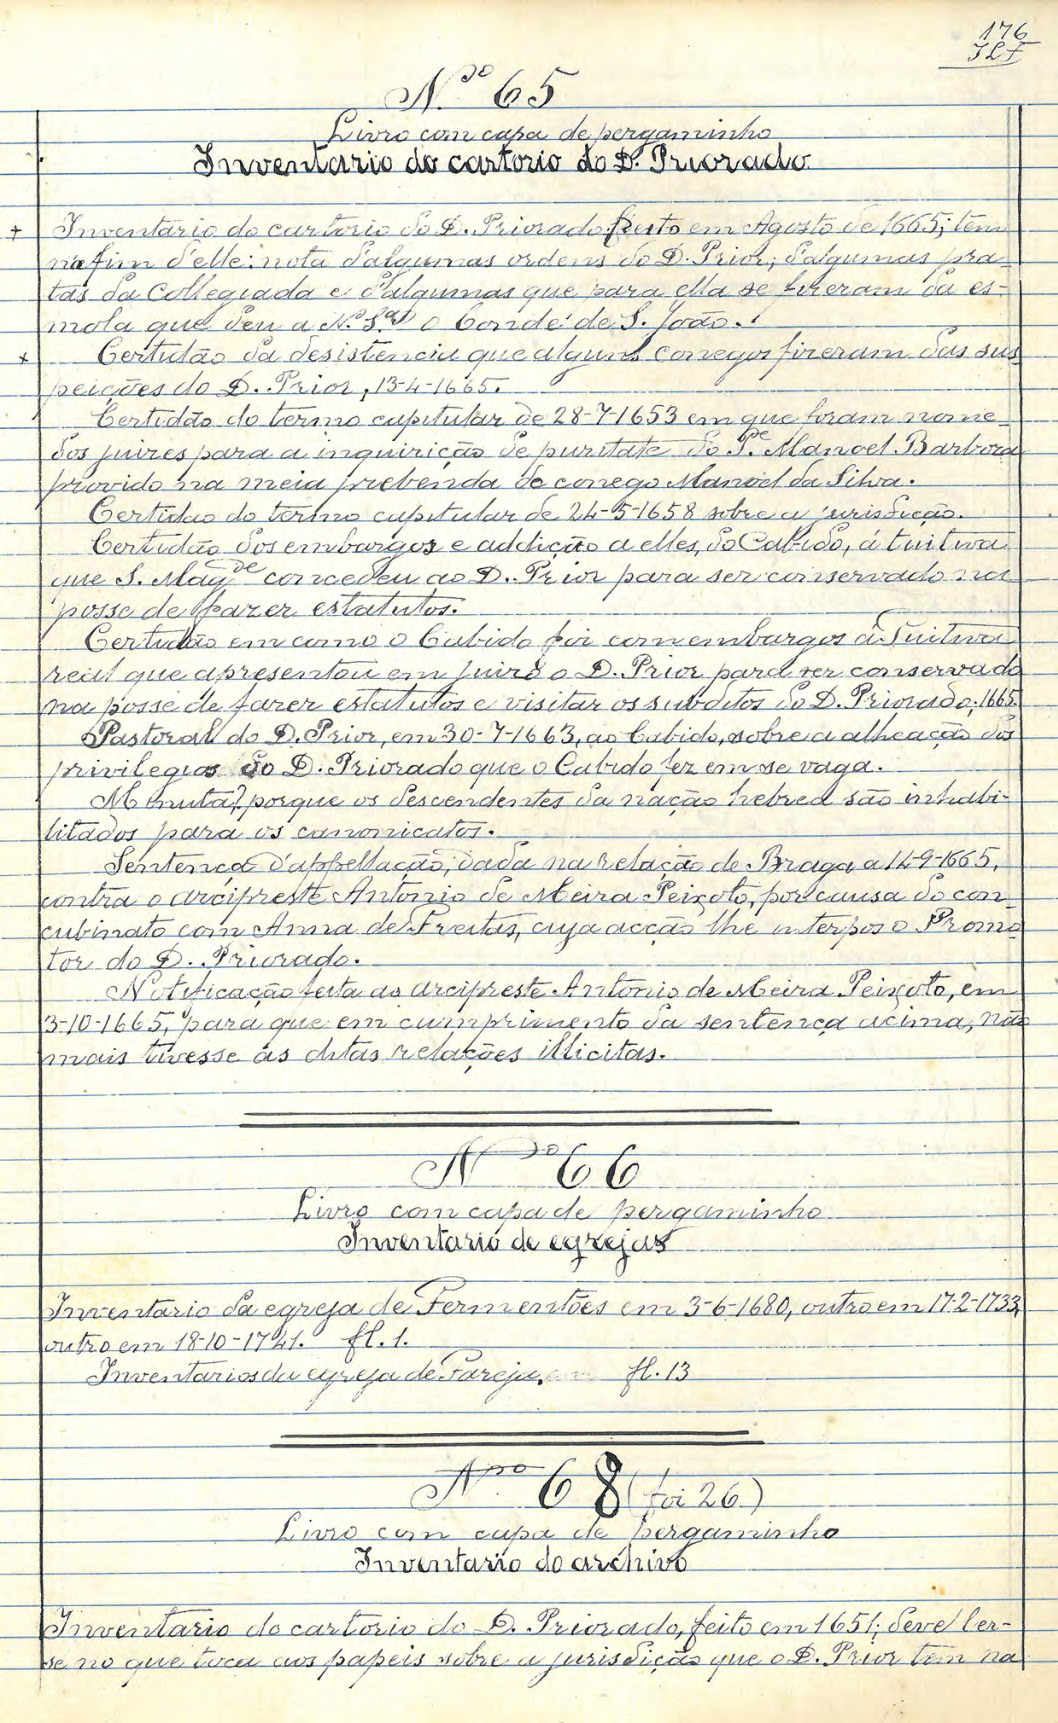 176
JLF
N.º 65
Livro com capa de pergaminho
Inventario do cartorio do D. Priorado
+ Inventario do cartorio do D. Priorado feito em Agosto de 1665; tem
no fim d'elle: nota d'algumas ordens do D. Prior; d'algumas pra-
tas da Collegiada e d'algumas que para ella se fizeram da es-
mola que deu a N. S.ra o Conde de S. João.
x Certidão da desistencia que alguns conegos fizeram das sus
peições do D. Prior, 13-4-1665.
Certidão do termo capitular de 28-7-1653 em que foram nome-
dos juizes para a inquirição de puritate do P.e Manoel Barbosa
provido na meia prebenda do conego Manoel da Silva.
Certidão do termo capitular de 24-5-1658 sobre a jurisdicção.
Certidão dos embargos e addicção a elles, do Cabido, á tuitiva
que S. Mag.de concedeu ao D. Prior para ser conservado na
posse de fazer estatutos.
Certidão em como o Cabido foi com embargos á Tuitiva
real que apresentou em juizo o D. Prior para ser conservado
na posse de fazer estatutos e visitar os subditos do D. Priorado; 1665.
Pastoral do D. Prior, em 30-7-1663, ao Cabido, sobre a alheação dos
privilegios do D. Priorado que o Cabido fez em se vaga.
Minuta?, porque os descendentes da nação hebrea são inhabi-
litados para os canonicatos.
Sentença d'appellação, dada na relação de Braga a 14-9-1665,
contra o arcipreste Antonio de Meira Peixoto, por causa do con-
cubinato com Anna de Freitas, cuja acção lhe interpos o Promo-
tor do D. Priorado.
Notificação feita ao arcipreste Antonio de Meira Peixoto, em
3-10-1665, para que em cumprimento da sentença acima, não
mais tivesse as ditas relações illicitas.
N.º 66
Livro com capa de pergaminho
Inventario de egrejas
Inventario da egreja de Fermentões em 3-6-1680, outro em 17-2-1733,
outro em 18-10-1741. fl. 1.
Inventarios da egreja de Gareja. fl. 13
N.º 68 (foi 26)
Livro com capa de pergaminho
Inventario do archivo
Inventario do cartorio do D. Priorado, feito em 1651; deve ler-
se no que toca aos papeis sobre a jurisdição que o D. Prior tem na